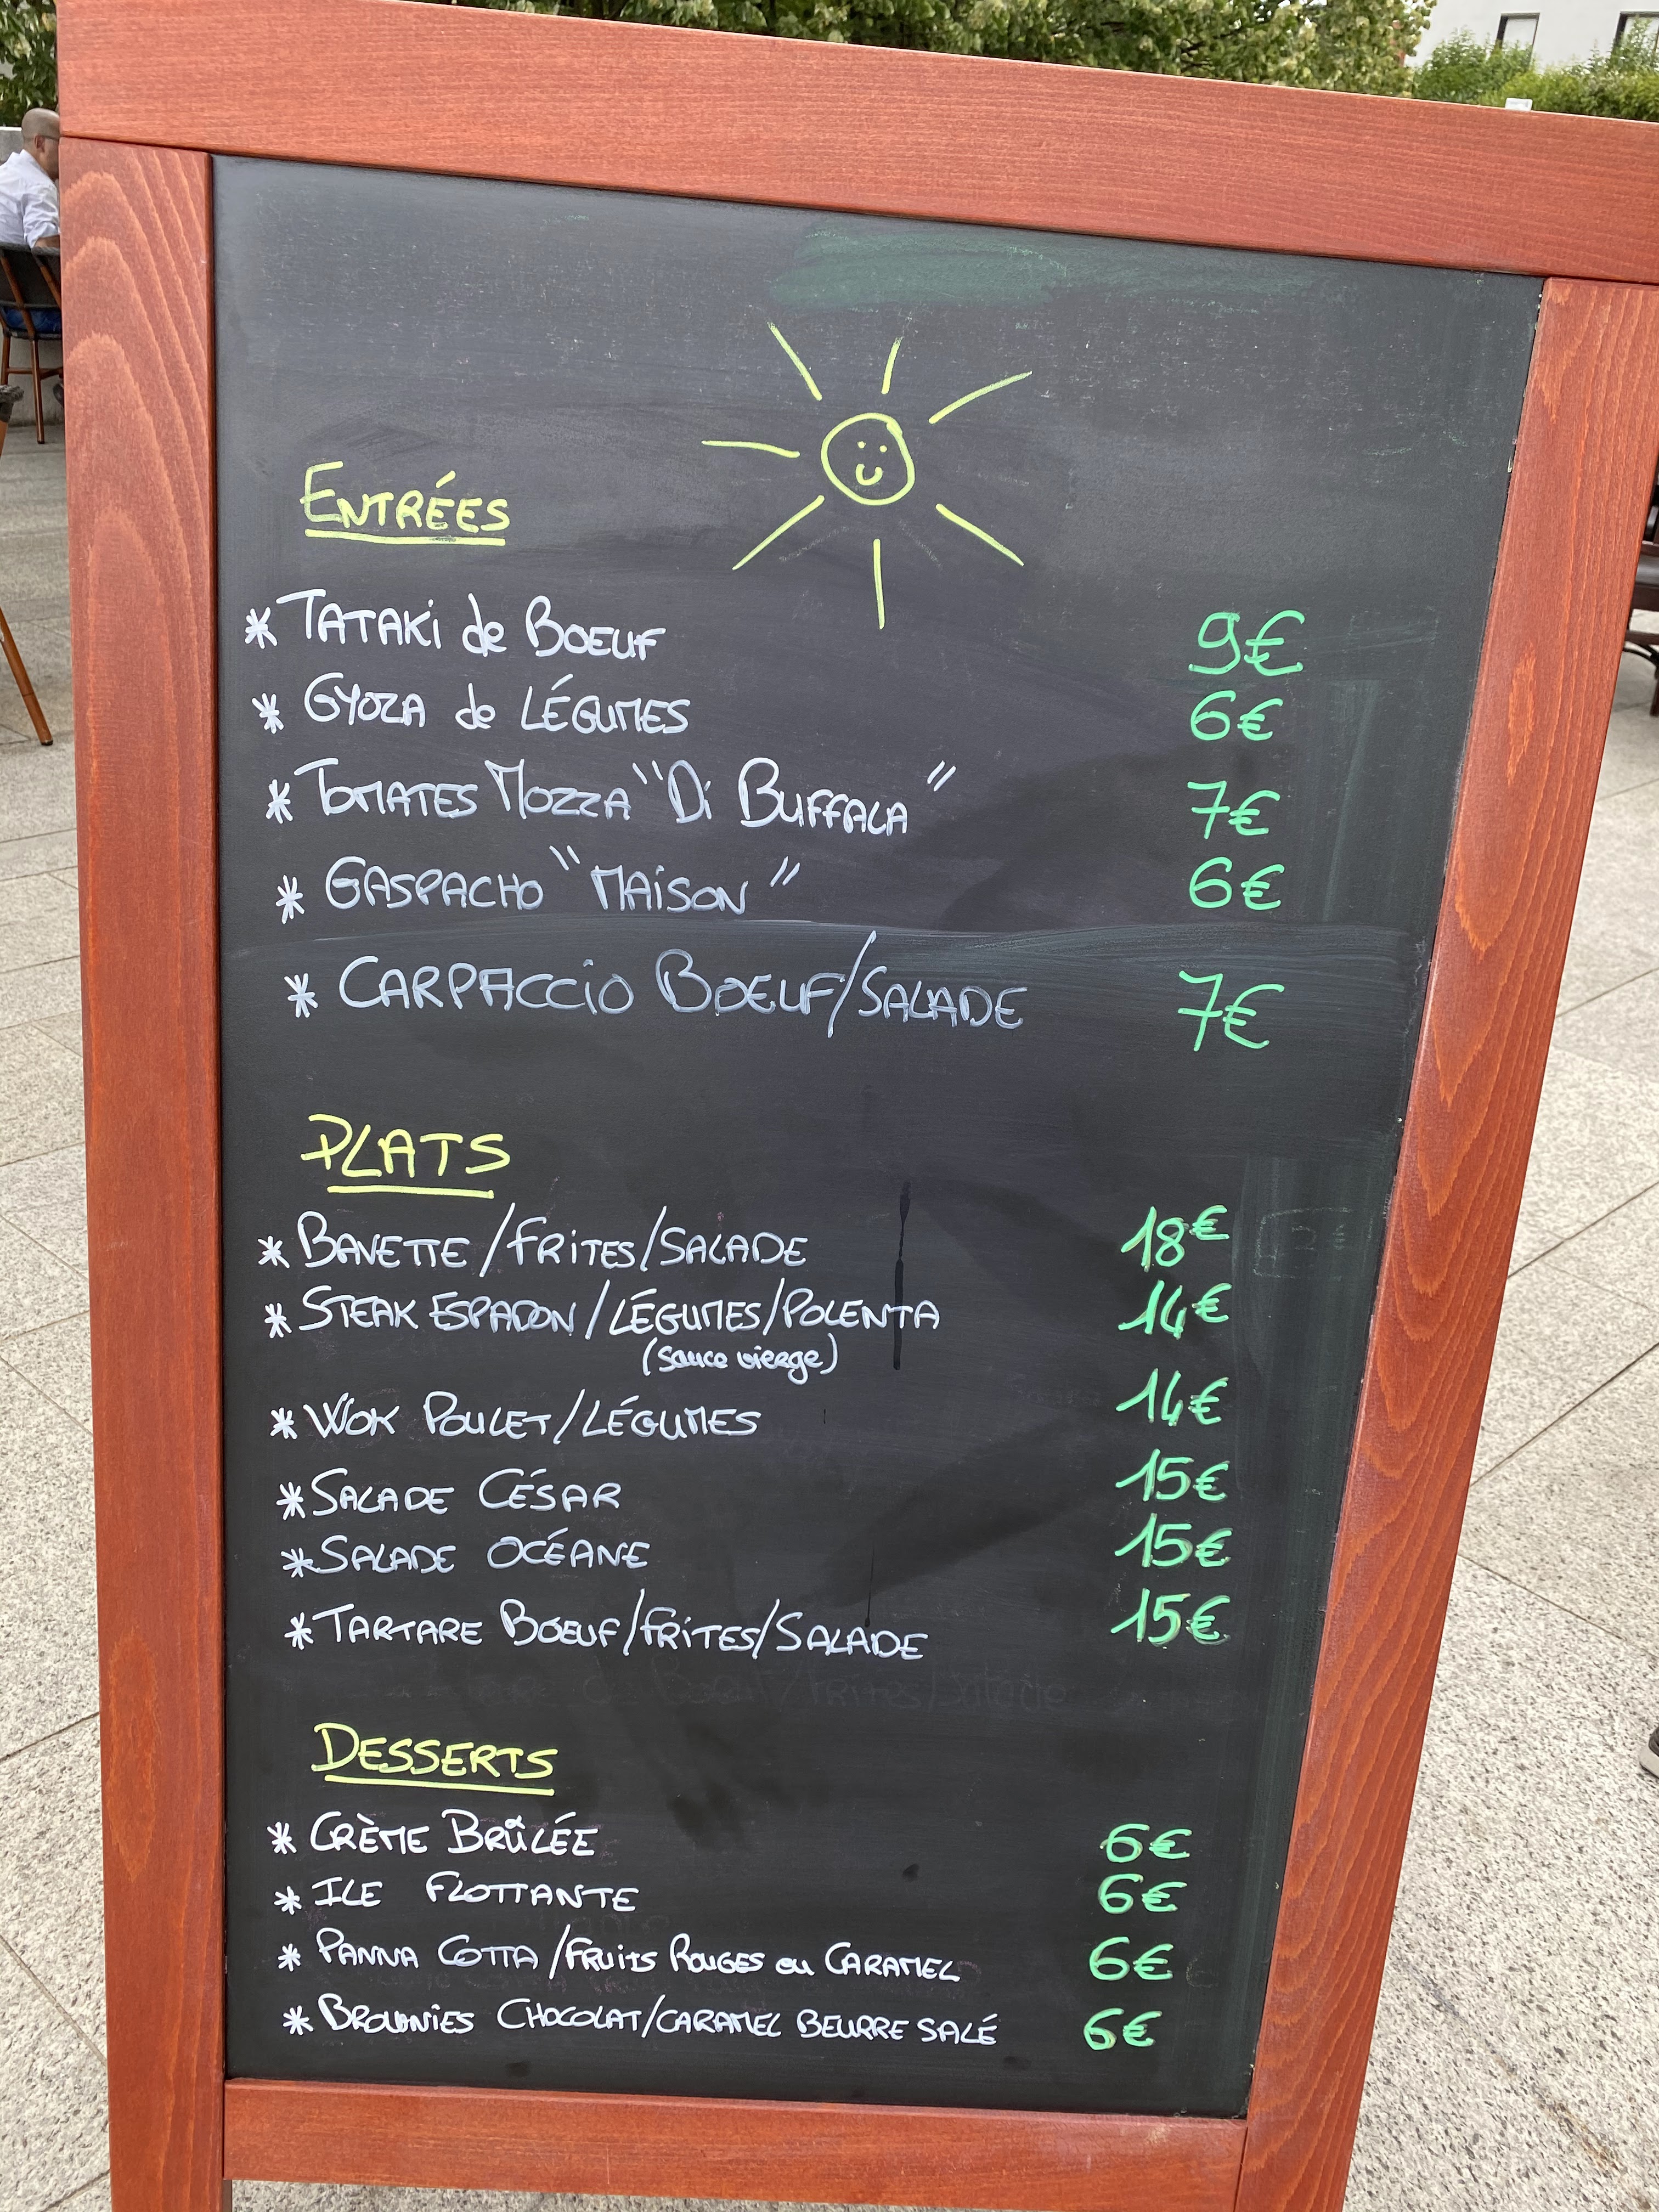 ENTRÉES
* TATAKi de BOEUF 9€
* GYOZA de LÉGUMES 6€
* TOMATES MOZZA "Di BUFFALA" 7€
* GASPACHO "MAiSON" 6€
* CARPACCiO BOEUF/SALADE 7€
PLATS
* BAVETTE/FRiTES/SALADE 18€
* STEAK ESPADON/LÉGUMES/POLENTA 14€
(sauce vierge)
* WOK POULET/LÉGUMES 14€
* SALADE CÉSAR 15€
* SALADE OCÉANE 15€
* TARTARE BOEUF/FRiTES/SALADE 15€
DESSERTS
* CRÈME BRÛLÉE 6€
* ILE FLOTTANTE 6€
* PANNA COTTA/FRUiTS ROUGES ou CARAMEL 6€
* BROWNiES CHOCOLAT/CARAMEL BEURRE SALÉ 6€